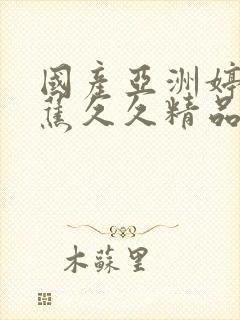 國產亞洲婷
蕉久久精品
木蘇里